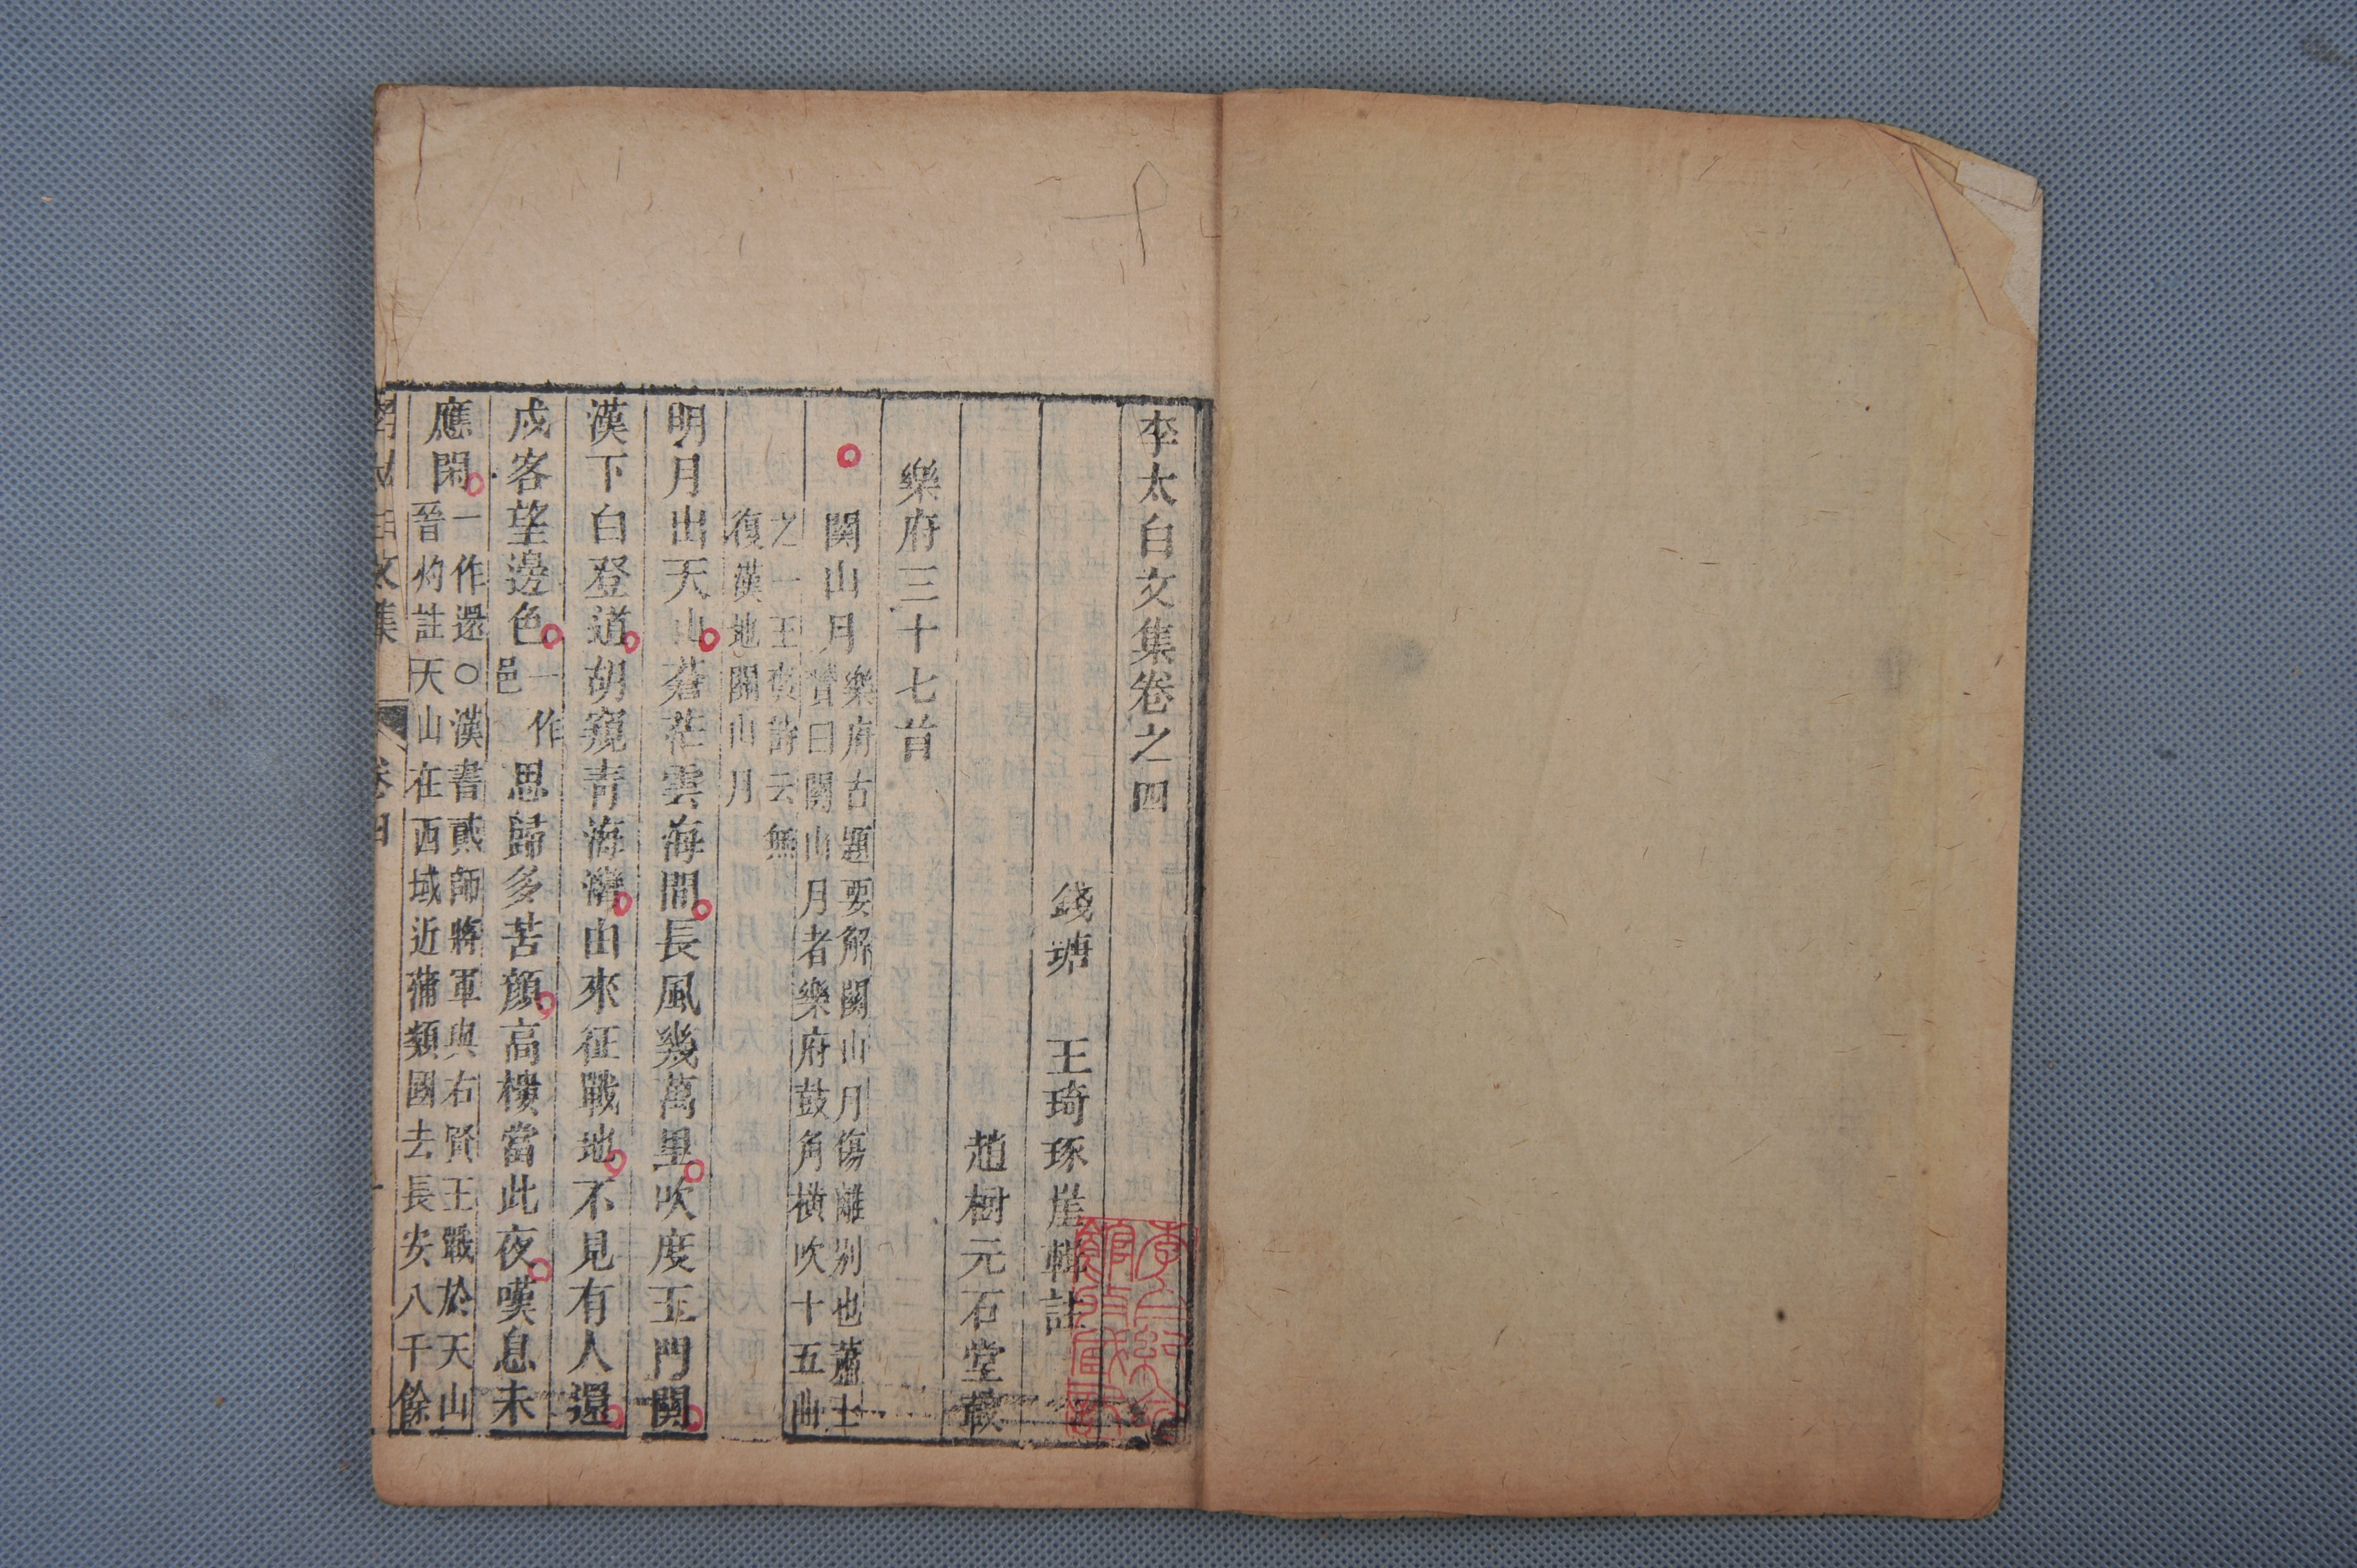 李太白文集卷之四
錢塘　王琦琢崖輯註
趙樹元石堂
樂府三十七首
關山月
樂府古題要解關山月傷離別也蕭士
贇曰關山月者樂府鼓角橫吹十五曲
之一王褒詩云無
復漢地關山月
明月出天山蒼茫雲海間長風幾萬里吹度玉門關
漢下白登道胡窺青海灣由來征戰地不見有人還
戍客望邊色
一作
邑
思歸多苦顏高樓當此夜嘆息未
應閑
一作還○漢書貳師將軍與右賢王戰於天山
晉灼註天山在西域近蒲類國去長安八千餘
文集
卷四